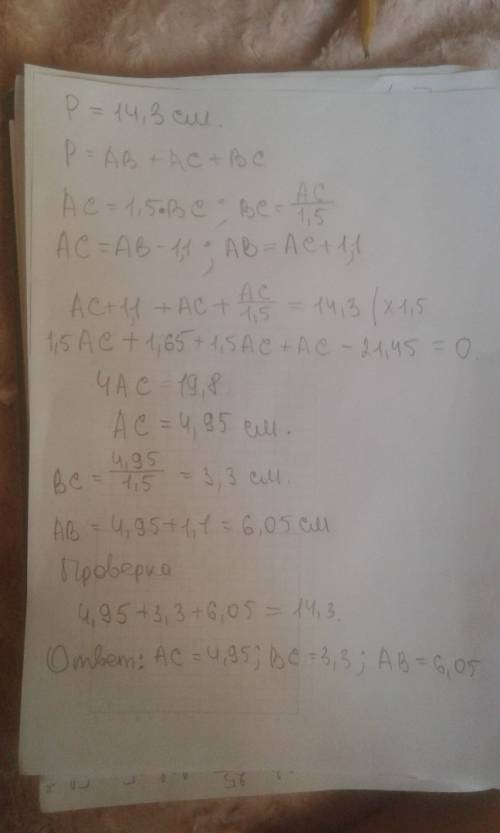 P = 14,3 см.
P = AB + AC + BC
AC = 1,5•BC ; BC = AC/1,5
AC = AB - 1,1 ; AB = AC + 1,1
AC + 1,1 + AC + AC/1,5 = 14,3 (x 1,5
1,5 AC + 1,65 + 1,5 AC + AC - 21,45 = 0
4 AC = 19,8.
AC = 4,95 см.
BC = 4,95/1,5 = 3,3 см.
AB = 4,95 + 1,1 = 6,05 см
Проверка
4,95 + 3,3 + 6,05 = 14,3.
Ответ: AC = 4,95; BC = 3,3; AB = 6,05